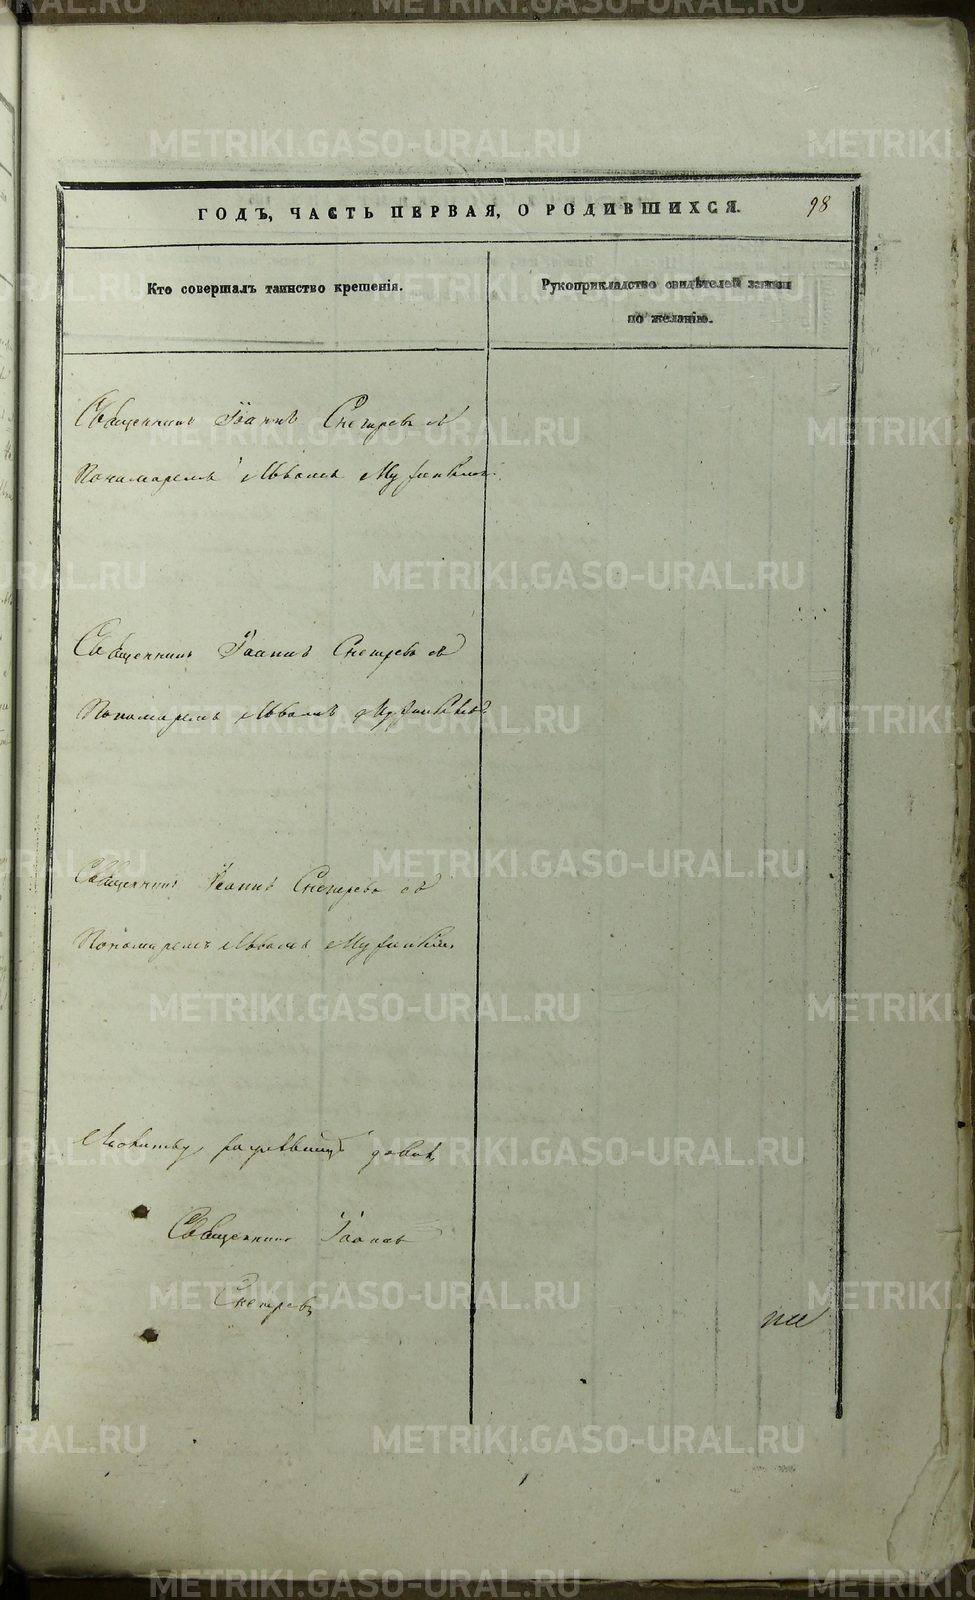 ГОДЪ, ЧАСТЬ ПЕРВАЯ, О РОДИВШИХСЯ.
98
Кто совершалъ таинство крещенія.
Рукоприкладство свидѣтелей записи
по желанію.
Священникъ Іоаннъ Снегиревъ съ
Пономаремъ Львомъ
Священникъ Іоаннъ Снегиревъ съ
Пономаремъ Львомъ
Священникъ Іоаннъ Снегиревъ съ
Пономаремъ Львомъ
Молитву
Священникъ Іоаннъ
Снегиревъ
METRIKI.GASO-URAL.RU